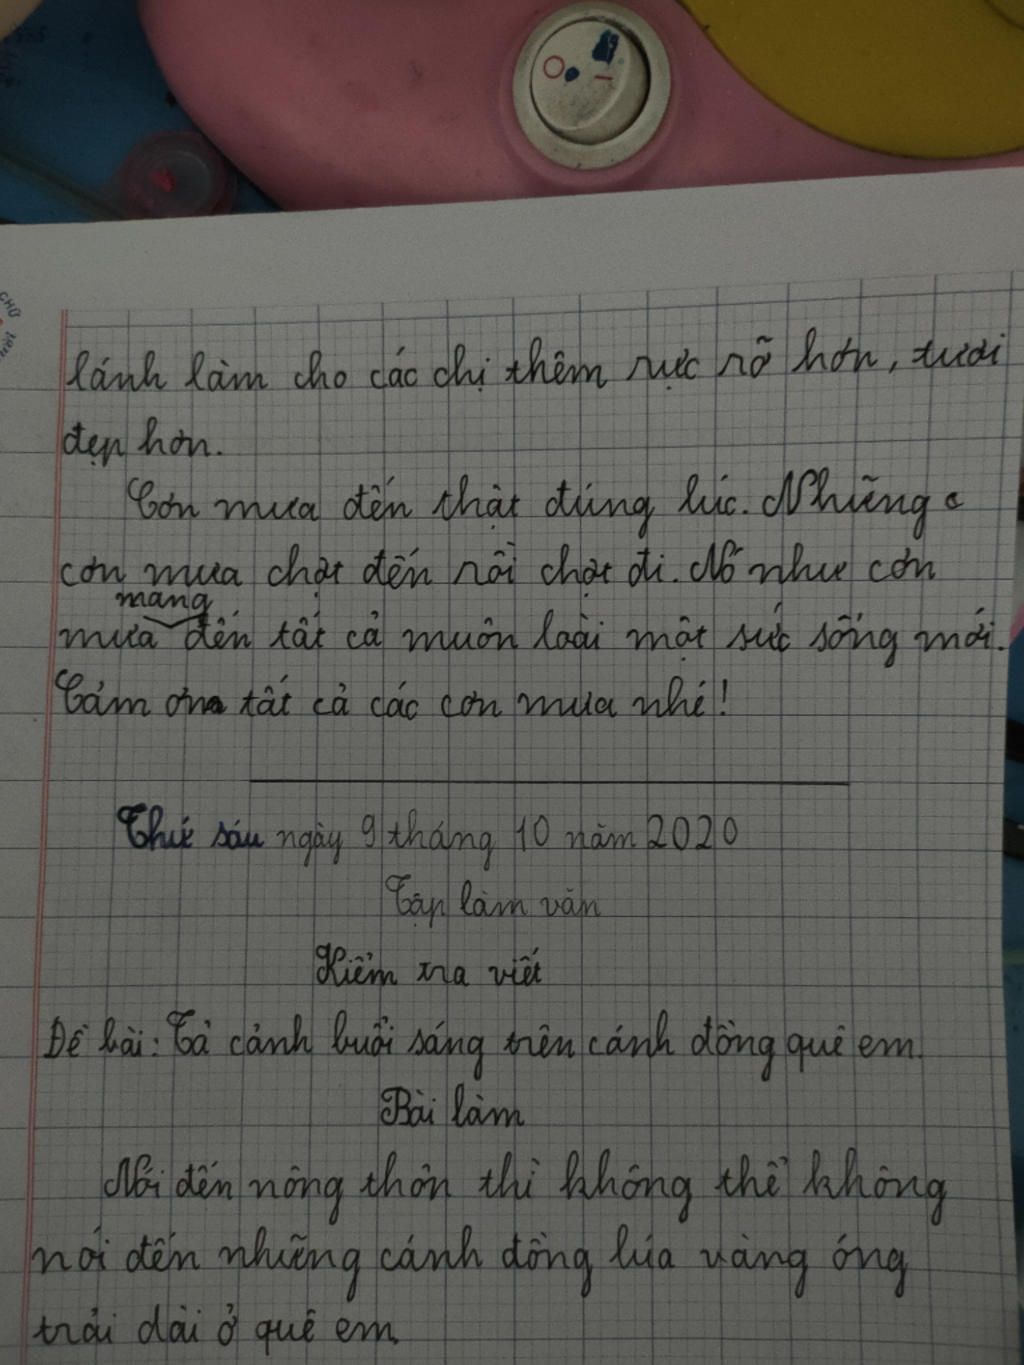 lánh làm cho các chị thêm rực rỡ hơn, tươi
đẹp hơn.
Cơn mưa đến thật đúng lúc. Những c
cơn mưa chợt đến rồi chợt đi. Nó như cơn
mang
mưa đến tất cả muôn loài một sức sống mới.
Cảm ơn tất cả các cơn mưa nhé!
Thứ sáu ngày 9 tháng 10 năm 2020
Tập làm văn
Kiểm tra viết
Đề bài: Tả cảnh buổi sáng trên cánh đồng quê em.
Bài làm
Nói đến nông thôn thì không thể không
nói đến những cánh đồng lúa vàng óng
trải dài ở quê em.